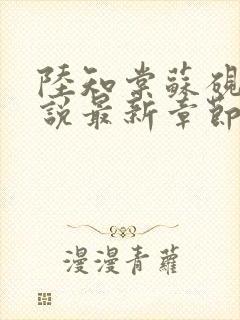 陸知棠蘇硯
說最新章節
漫漫青蘿